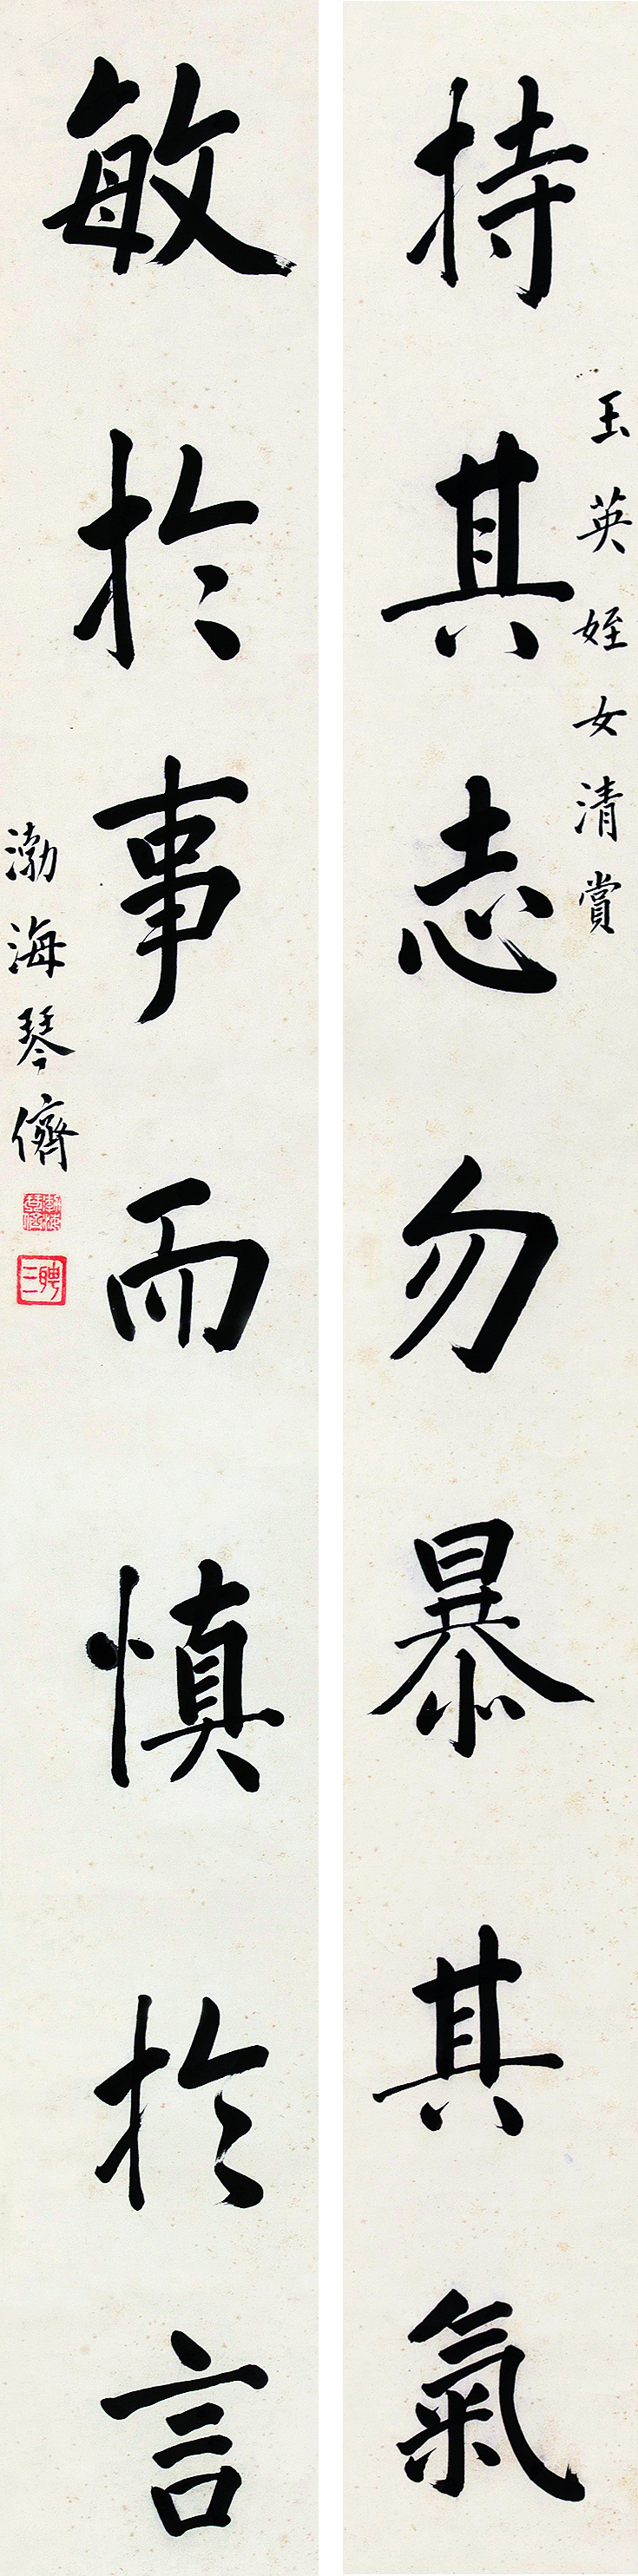 玉英姪女清賞
持其志勿暴其氣
敏於事而慎於言
渤海琴儕
聘三